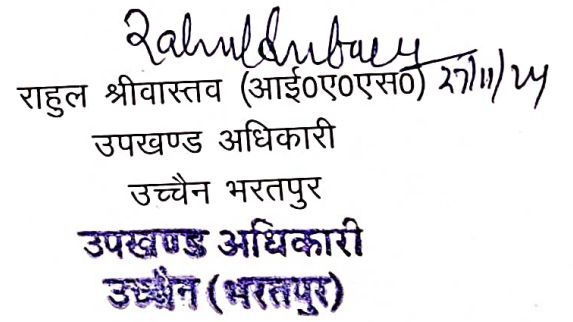 27/11/24
राहुल श्रीवास्तव (आई०ए०एस०)
उपखण्ड अधिकारी
उच्चैन भरतपुर
उपखण्ड अधिकारी
उच्चैन (भरतपुर)